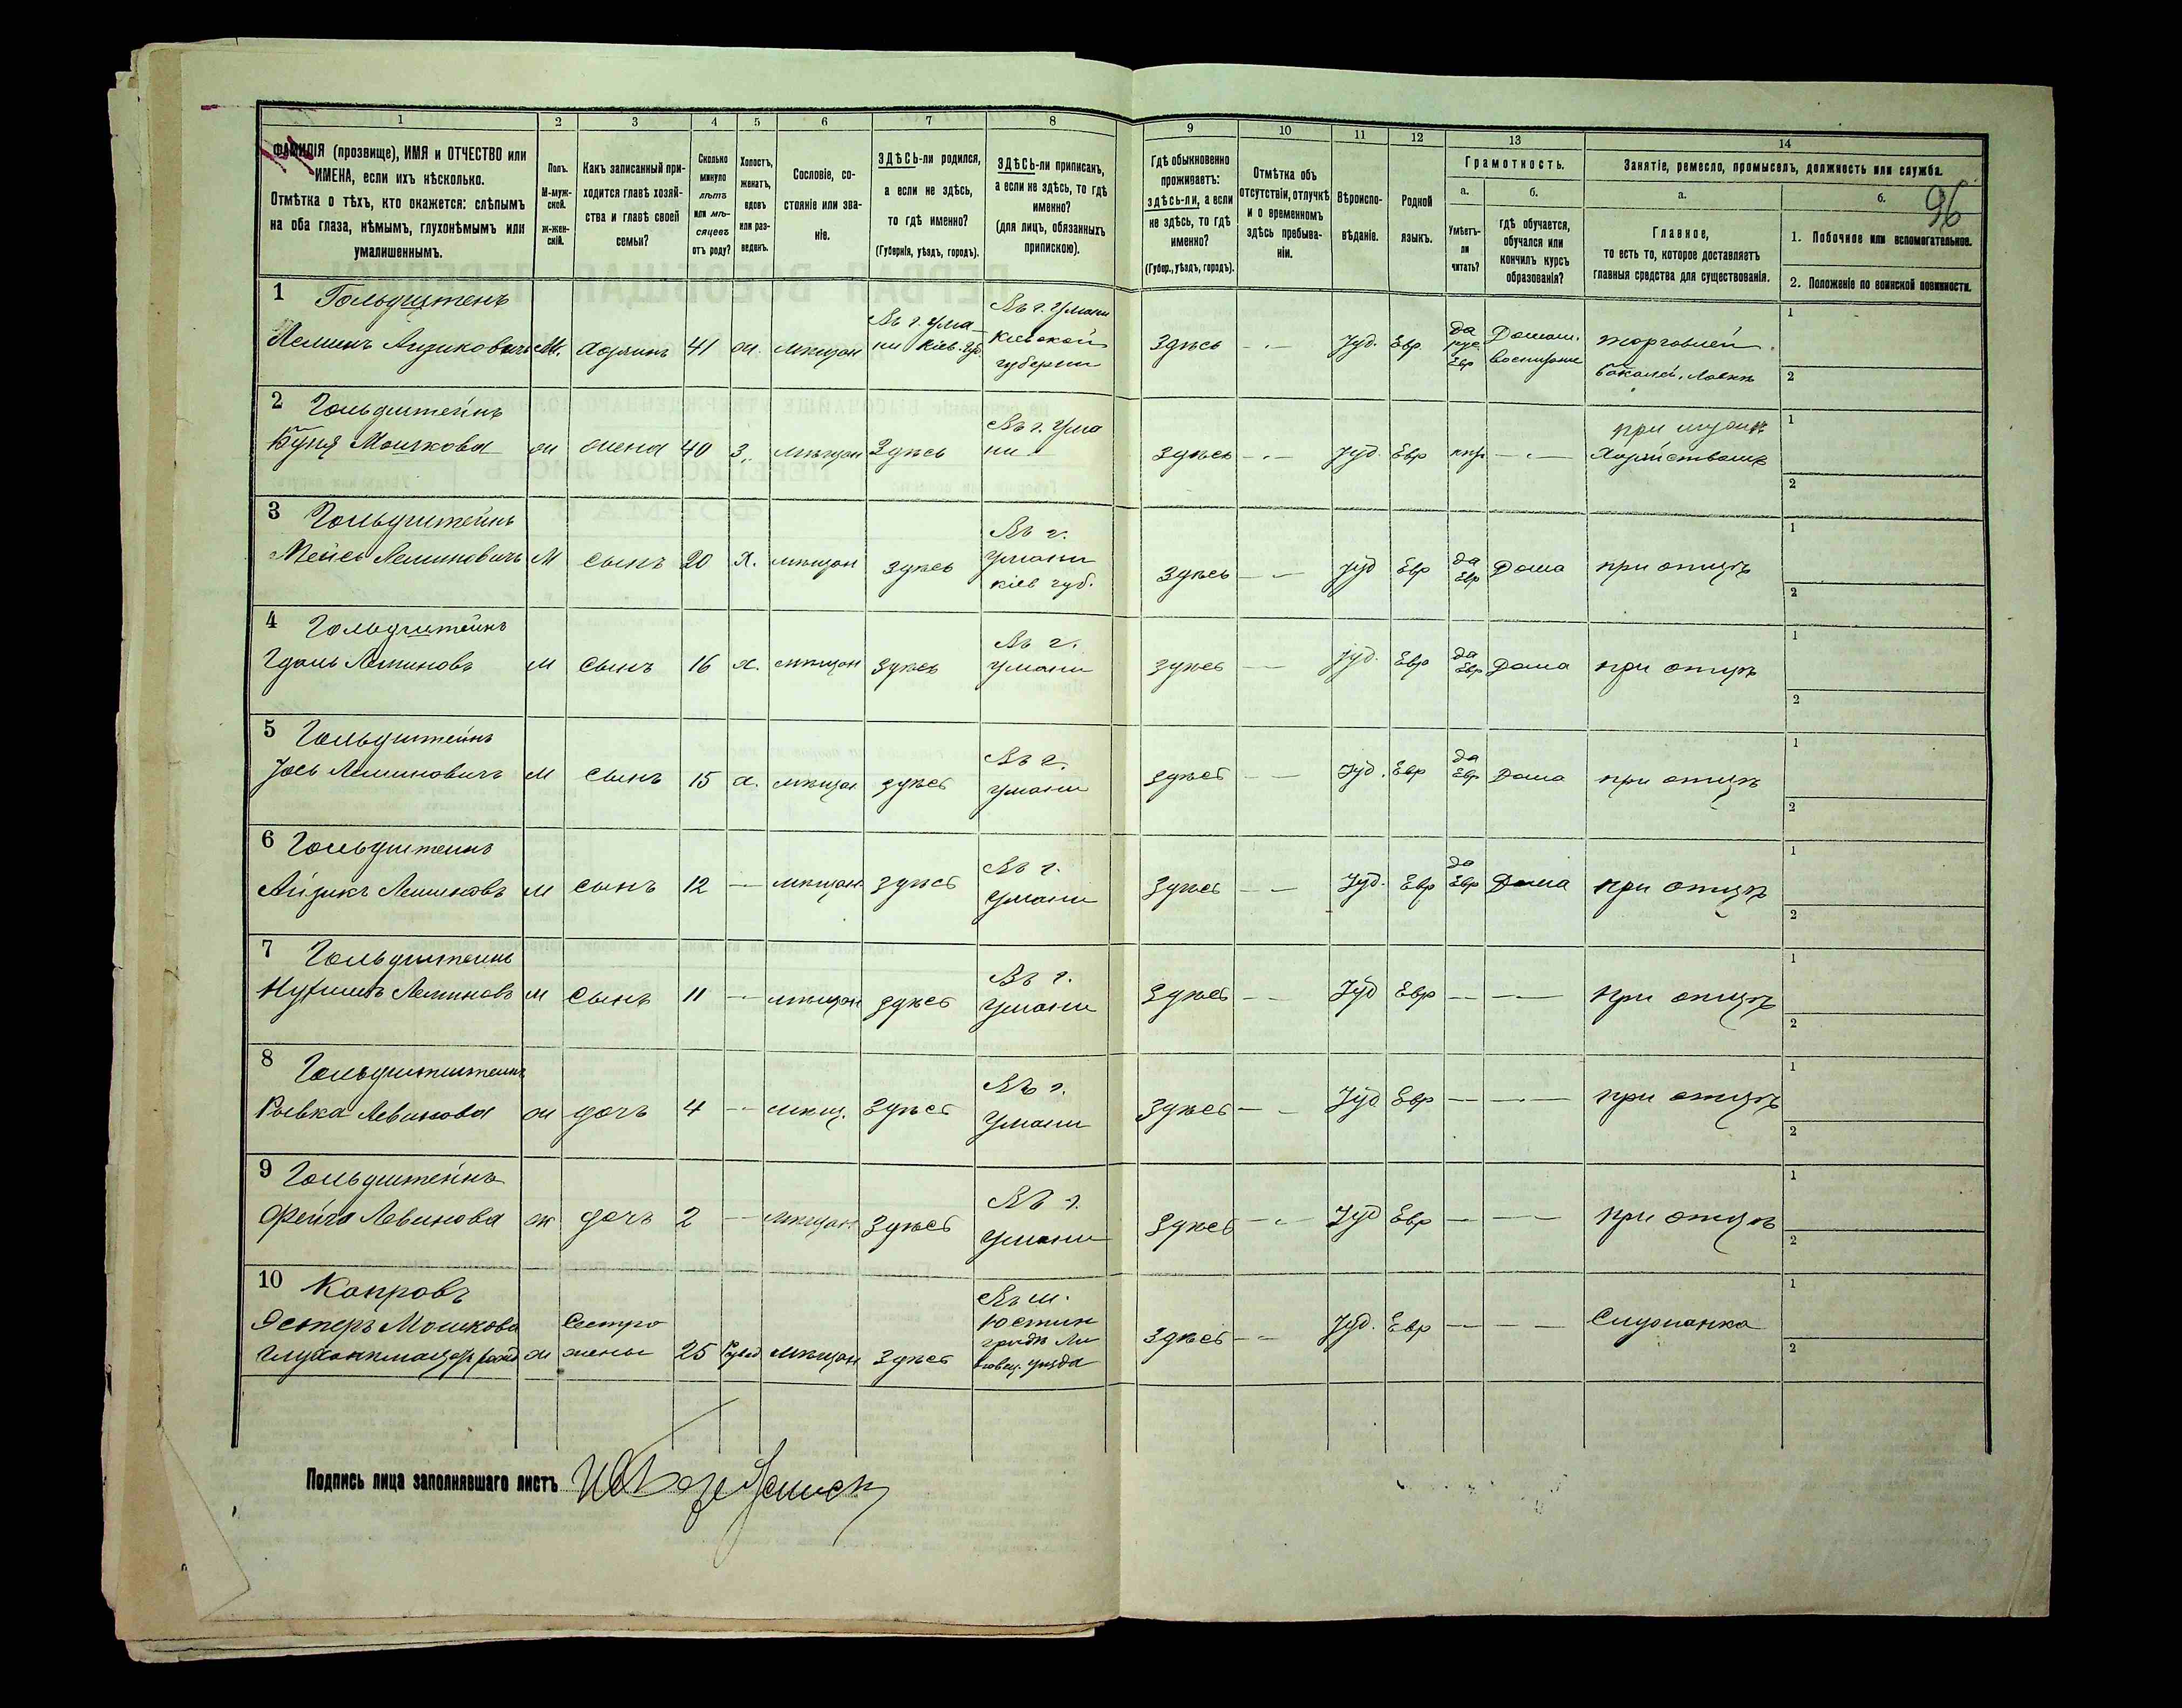 1 2 3 4 5 6 7 8 9 10 11 12 13 14
ФАМИЛІЯ (прозвище), ИМЯ и ОТЧЕСТВО или
ИМЕНА, если ихъ нѣсколько.
Отмѣтка о тѣхъ, кто окажется: слѣпымъ
на оба глаза, нѣмымъ, глухонѣмымъ или
умалишеннымъ.
Полъ.
М-муж-
ской.
ж-жен-
скій.
Какъ записанный при-
ходится главѣ хозяй-
ства и главѣ своей
семьи?
Сколько
минуло
лѣтъ
или мѣ-
сяцевъ
отъ роду?
Холостъ,
женатъ,
вдовъ
или раз-
веденъ.
Сословіе, со-
стояніе или зва-
ніе.
ЗДѢСЬ-ли родился,
а если не здѣсь,
то гдѣ именно?
(Губернія, уѣздъ, городъ).
ЗДѢСЬ-ли приписанъ,
а если не здѣсь, то гдѣ
именно?
(для лицъ, обязанныхъ
припискою).
Гдѣ обыкновенно
проживаетъ:
здѣсь-ли, а если
не здѣсь, то гдѣ
именно?
(Губер., уѣздъ, городъ).
Отмѣтка объ
отсутствіи, отлучкѣ
и о временномъ
здѣсь пребыва-
ніи.
Вѣроиспо-
вѣданіе.
Родной
языкъ.
Грамотность.
а.
Умѣетъ-
ли
читать?
б.
гдѣ обучается,
обучался или
кончилъ курсъ
образованія?
Занятіе, ремесло, промыселъ, должность или служба.
а.
Главное,
то есть то, которое доставляетъ
главныя средства для существованія.
б.
96
1. Побочное или вспомогательное.
2. Положеніе по воинской повинности.
1 Гольдштенъ
Айзиковичъ М. хозяинъ 41 ж. мѣщан
Въ г. Ума-
ни Кіев. губ.
Въ г. Умани
Кіевской
губерніи
Здѣсь Іуд. Евр.
да
рус.
Евр
Домаш.
воспитание
торговлей
бакалей. лавк
1
2
2 Гольдштейнъ
Буня Мошкова ж жена 40 з. мѣщан Здѣсь
Въ г. Ума
ни
Здѣсь Іуд. Евр
при мужѣ
1
2
3 Гольдштейнъ
М сынъ 20 х. мѣщан здѣсь
Въ г.
Умани
Кіев губ.
Здѣсь Іуд Евр
да
Евр
Дома при отцѣ
1
2
4 Гольдштейнъ
м сынъ 16 х. мѣщан здѣсь
Въ г.
Умани
здѣсь Іуд. Евр
да
Евр
Дома при отцѣ
1
2
5 Гольдштейнъ
Іось м сынъ 15 х. мѣщан здѣсь
Въ г.
Умани
здѣсь Іуд. Евр
да
Евр
Дома при отцѣ
1
2
6 Гольдштейнъ
Айзикъ м сынъ 12 — мѣщан здѣсь
Въ г.
Умани
Здѣсь Іуд. Евр
да
Евр
Дома при отцѣ
1
2
7 Гольдштейнъ
м сынъ 11 — мѣщан здѣсь
Въ г.
Умани
Здѣсь Іуд Евр — — при отцѣ
1
2
8
Ривка Левинова ж дочь 4 — мѣщ. Здѣсь
Въ г.
Умани
Здѣсь Іуд Евр — — при отцѣ
1
2
9 Гольдштейнъ
Фейга Левинова ж дочь 2 — мѣщан. Здѣсь
Въ г.
Умани
Здѣсь Іуд Евр — — при отцѣ
1
2
10 Капровъ
Эстеръ Мошкова
ж
Сестра
жены
25 мѣщан Здѣсь
Въ м.
Юстин
градѣ Ли
повец. уѣзда
Здѣсь Іуд. Евр — — Служанка
1
2
Подпись лица заполнявшаго листъ